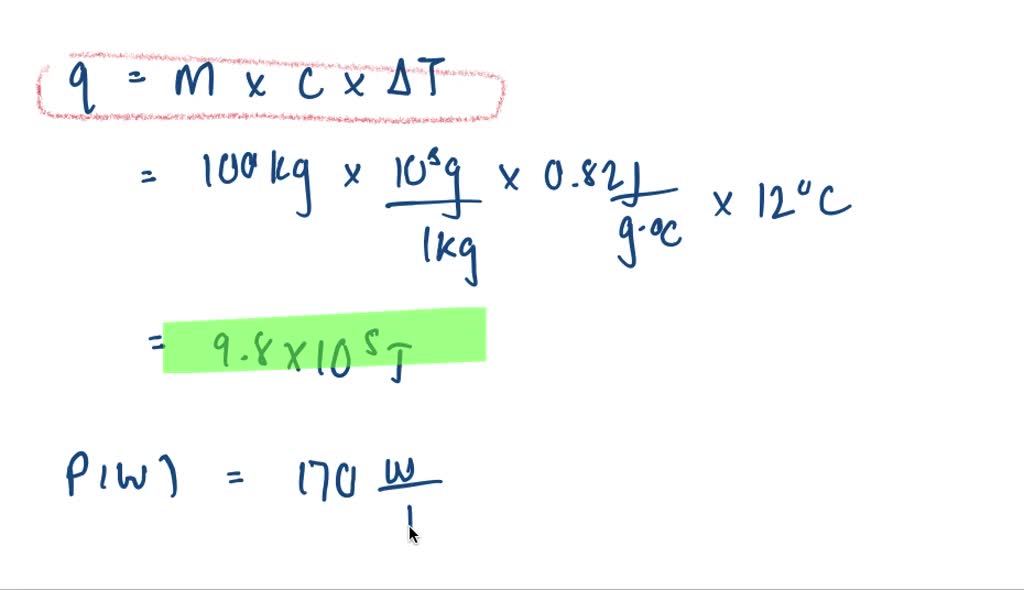 q = M x C x ΔT
= 100 kg x 10³g / 1kg x 0.82 J / g·°C x 12°C
= 9.8 x 10⁵ J
P(W) = 170 W / 1